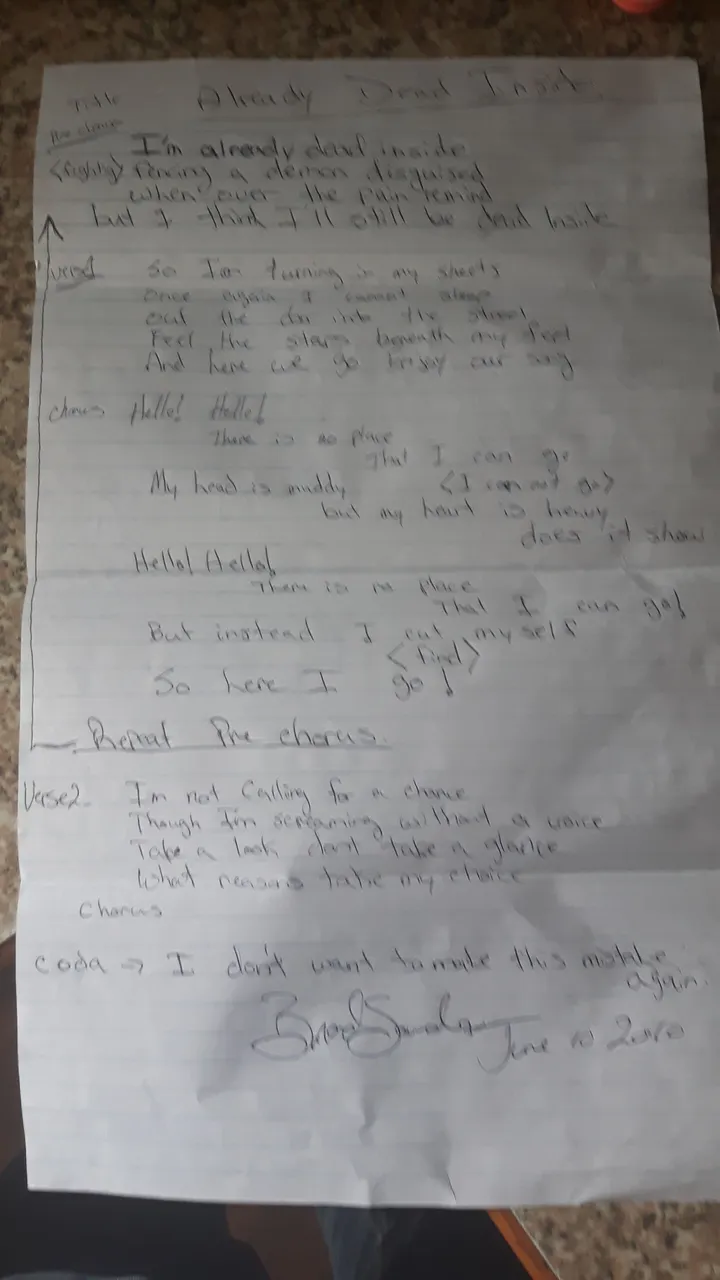 Title Already Dead Inside
Pre chorus
I'm already dead inside
<fighting> Fencing a demon disguised
when over the pain remind
but I think I'll still be dead Inside
Verse1 So I'm turning in my sheets
Once again I cannot sleep
out the door into the street
Feel the stars beneath my feet
And here we go Enjoy our
Chorus Hello! Hello!
There is no place
That I can go
My head is muddy <I can not go>
but my heart is heavy
does it show
Hello! Hello!
There is no place
That I can go!
But instead I cut my self
<find>
So here I go!
Repeat Pre chorus.
Verse2. I'm not Calling for a chance
Though I'm screaming without a voice
Take a look don't take a glance
What reasons take my choice
Chorus
Coda → I don't want to make this mistake
again.
June 10 2010